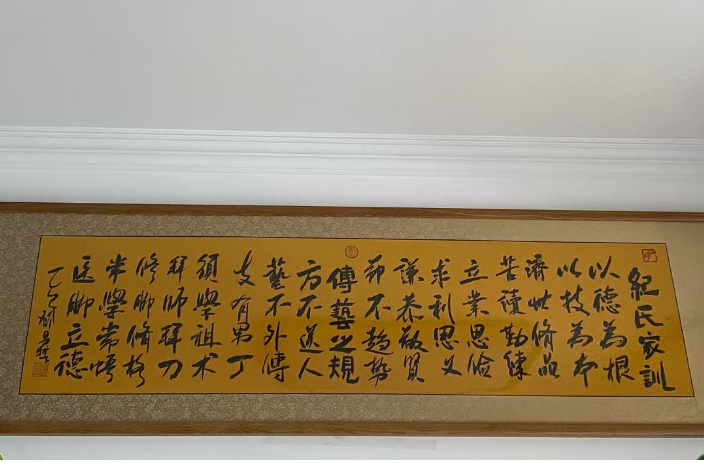 紀氏家訓
以德為根
以技為本
濟世脩品
苦讀勤練
立業思儉
求利思义
謙恭敬賢
而不趨势
傳藝之規
方不送人
藝不外傳
支有男丁
須學祖术
拜师拜刀
修脚修格
常學常悟
医脚立德
乙